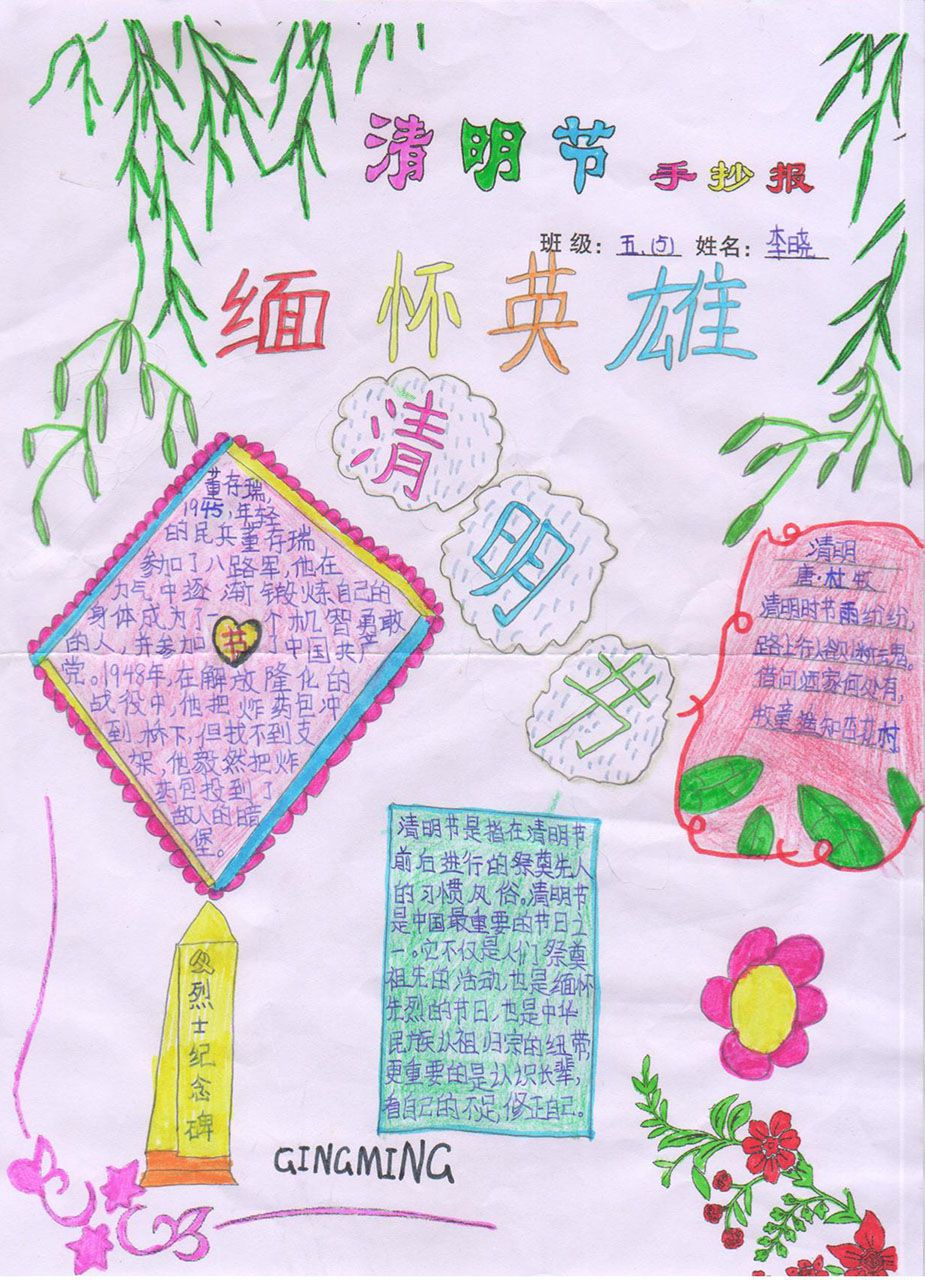 清明节 手抄报
班级：五.(5) 姓名：李晓
缅怀英雄
清
明
节
董存瑞，
1945，年轻
的民兵董存瑞
参加了八路军，他在
力气中逐渐锻炼自己的
身体成为了一个机智勇敢
的人，并参加了中国共产
党。1948年，在解放隆化的
战役中，他把炸药包冲
到桥下，但找不到支
架，他毅然把炸
药包投到了
敌人的暗
堡。
节
清明
唐·杜牧
清明时节雨纷纷，
路上行人欲断魂。
借问酒家何处有，
牧童遥知杏花村。
清明节是指在清明节
前后进行的祭奠先人
的习惯风俗。清明节
是中国最重要的节日之
一。它不仅是人们祭奠
祖先的活动，也是缅怀
先烈的节日，也是中华
民族认祖归宗的纽带，
更重要的是认识长辈，
看自己的不足，修正自己。
烈士纪念碑
GINGMING